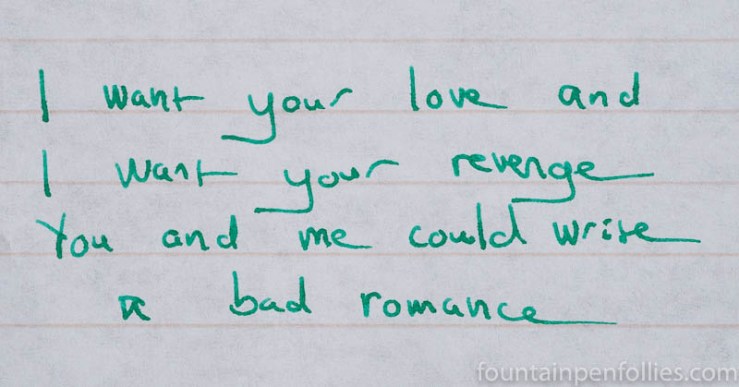 I want your love and
I want your revenge
You and me could write
a bad romance
fountainpenfollies.com